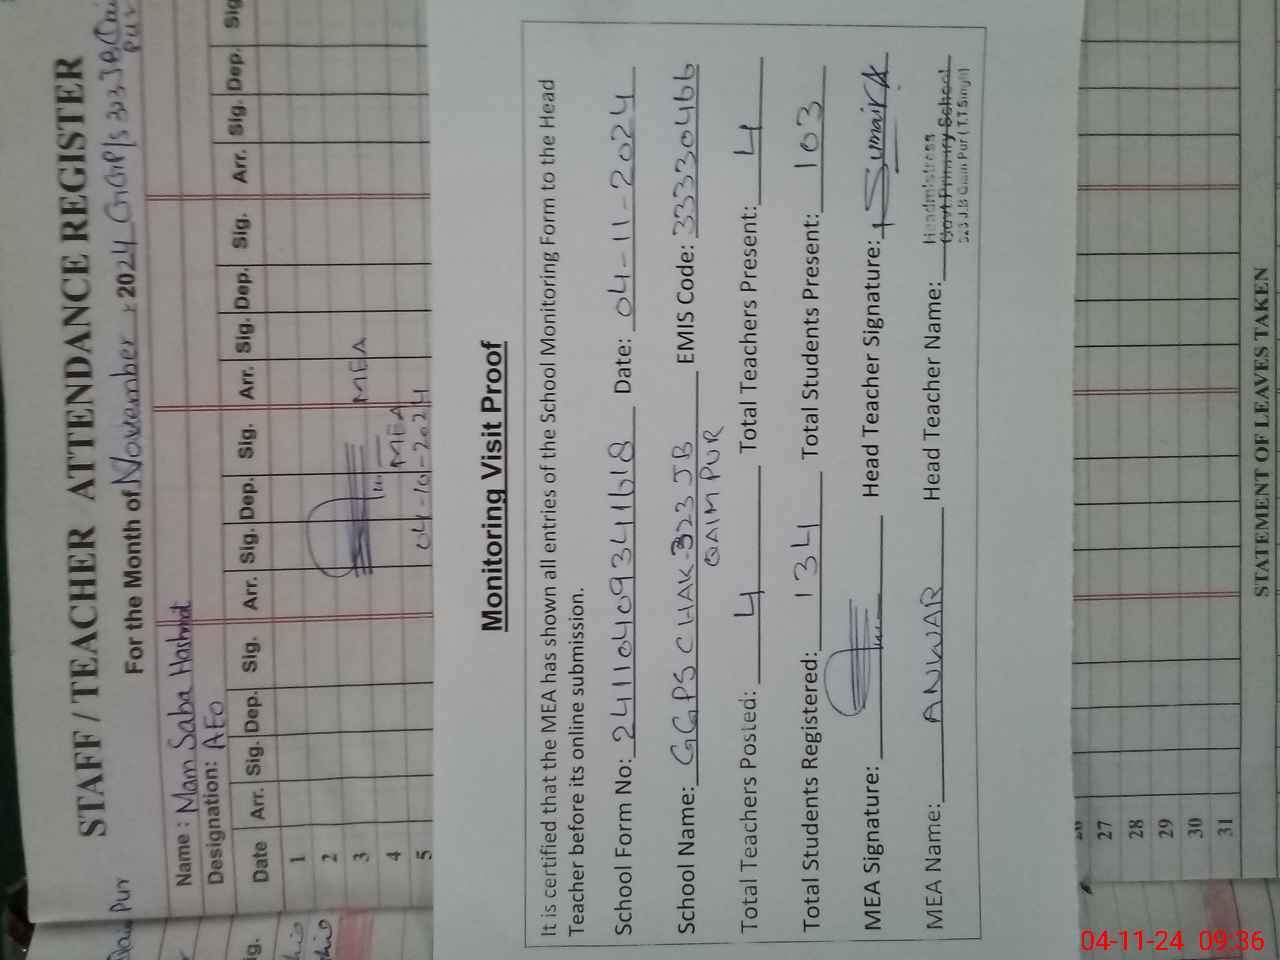 STAFF / TEACHER ATTENDANCE REGISTER
For the Month of November, 2024 GGPS 323 JB
Pur
Name : Mam Saba Hashmat
Designation: AEO
Date Arr. Sig. Dep. Sig. Arr. Sig. Dep. Sig. Arr. Sig. Dep. Sig. Arr. Sig. Dep. Sig
1
2
3 MEA
4 MEA
5 04-10-2024
Monitoring Visit Proof
It is certified that the MEA has shown all entries of the School Monitoring Form to the Head
Teacher before its online submission.
School Form No: 24110409341618 Date: 04-11-2024
School Name: GGPS CHAK-323 JB EMIS Code: 33330466
QAIM PUR
Total Teachers Posted: 4 Total Teachers Present: 4
Total Students Registered: 134 Total Students Present: 103
MEA Signature: Head Teacher Signature: Sumaira
MEA Name: ANWAR Head Teacher Name:
Headmistress
Govt. Primary School
323 J.B Qaim Pur (T.T Singh)
27
28
29
30
31
STATEMENT OF LEAVES TAKEN
Pur
ig.
04-11-24 09:36